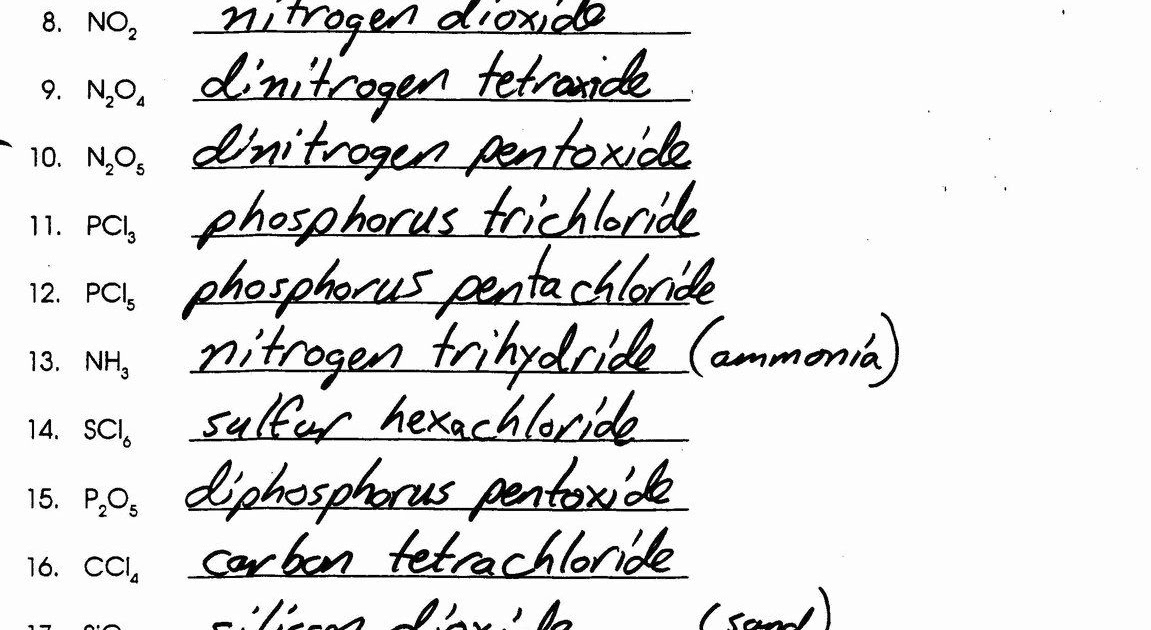 8. NO₂ nitrogen dioxide
9. N₂O₄ dinitrogen tetroxide
10. N₂O₅ dinitrogen pentoxide
11. PCl₃ phosphorus trichloride
12. PCl₅ phosphorus pentachloride
13. NH₃ nitrogen trihydride (ammonia)
14. SCl₆ sulfur hexachloride
15. P₂O₅ diphosphorus pentoxide
16. CCl₄ carbon tetrachloride
17. SiO silicon dioxide (sand)